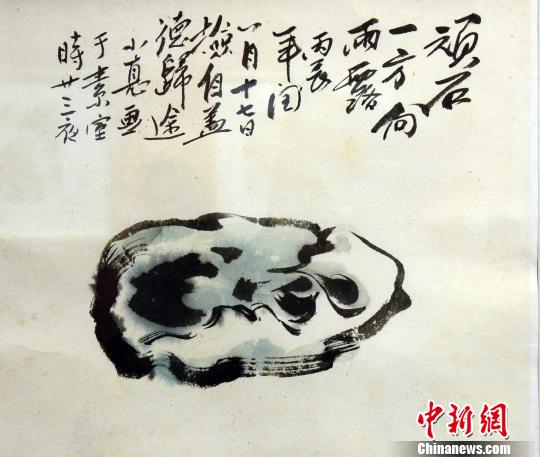 頑石
一方向
雨露
丙辰
年闰
八月十七日
撿自盖
德歸途
小真画
于素室
時廿三夜
中新網
Chinanews.com